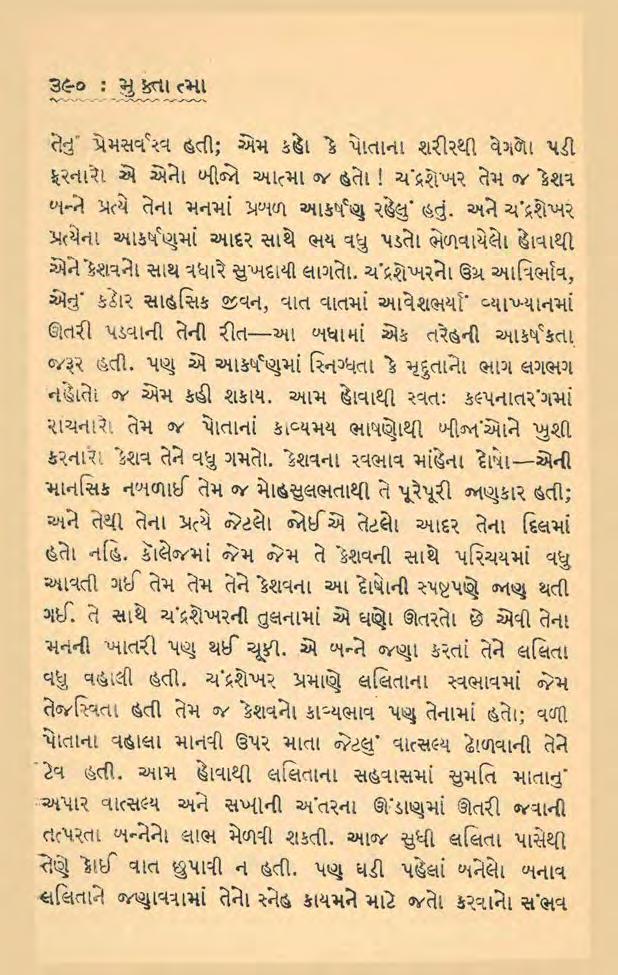 ૩૯૦ : મુક્તાત્મા
તેનું પ્રેમસર્વસ્વ હતી; એમ કહો કે પોતાના શરીરથી વેગળો પડી
ફરનારો એ એનો બીજો આત્મા જ હતો ! ચંદ્રશેખર તેમ જ કેશવ
બન્ને પ્રત્યે તેના મનમાં પ્રબળ આકર્ષણ રહેલું હતું. અને ચંદ્રશેખર
પ્રત્યેના આકર્ષણમાં આદર સાથે ભય વધુ પડતો ભેળવાયેલો હોવાથી
એને કેશવનો સાથ વધારે સુખદાયી લાગતો. ચંદ્રશેખરનો ઉગ્ર આવિર્ભાવ,
એનું કઠોર સાહસિક જીવન, વાત વાતમાં આવેશભર્યાં વ્યાખ્યાનમાં
ઊતરી પડવાની તેની રીત—આ બધામાં એક તરેહની આકર્ષકતા
જરૂર હતી. પણ એ આકર્ષણમાં સ્નિગ્ધતા કે મૃદુતાનો ભાગ લગભગ
નહોતો જ એમ કહી શકાય. આમ હોવાથી સ્વતઃ કલ્પનાતરંગમાં
રાચનારો તેમ જ પોતાનાં કાવ્યમય ભાષણોથી બીજાંઓને ખુશી
કરનારો કેશવ તેને વધુ ગમતો. કેશવના સ્વભાવ માંહેના દોષો—એની
માનસિક નબળાઈ તેમ જ મોહસુલભતાથી તે પૂરેપૂરી જાણકાર હતી;
અને તેથી તેના પ્રત્યે જેટલો જોઈએ તેટલો આદર તેના દિલમાં
હતો નહિ. કૉલેજમાં જેમ જેમ તે કેશવની સાથે પરિચયમાં વધુ
આવતી ગઈ તેમ તેમ તેને કેશવના આ દોષોની સ્પષ્ટપણે જાણ થતી
ગઈ. તે સાથે ચંદ્રશેખરની તુલનામાં એ ઘણો ઊતરતો છે એવી તેના
મનની ખાતરી પણ થઈ ચૂકી. એ બન્ને જણા કરતાં તેને લલિતા
વધુ વહાલી હતી. ચંદ્રશેખર પ્રમાણે લલિતાના સ્વભાવમાં જેમ
તેજસ્વિતા હતી તેમ જ કેશવનો કાવ્યભાવ પણ તેનામાં હતો; વળી
પોતાના વહાલા માનવી ઉપર માતા જેટલું વાત્સલ્ય ઢોળવાની તેને
ટેવ હતી. આમ હોવાથી લલિતાના સહવાસમાં સુમતિ માતાનું
અપાર વાત્સલ્ય અને સખીની અંતરના ઊંડાણમાં ઊતરી જવાની
તત્પરતા બન્નેનો લાભ મેળવી શકતી. આજ સુધી લલિતા પાસેથી
તેણે કોઈ વાત છુપાવી ન હતી. પણ ઘડી પહેલાં બનેલો બનાવ
લલિતાને જણાવવામાં તેનો સ્નેહ કાયમને માટે જતો કરવાનો સંભવ